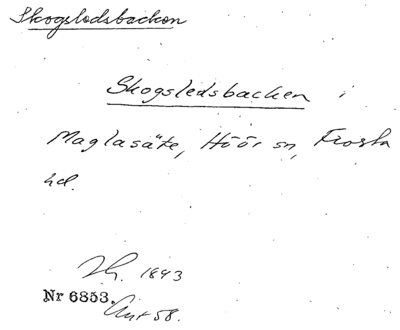 Skogsledsbacken
Skogsledsbacken i
Maglasäte, Höör sn, Frosta
hd.
1893
Nr 6853.